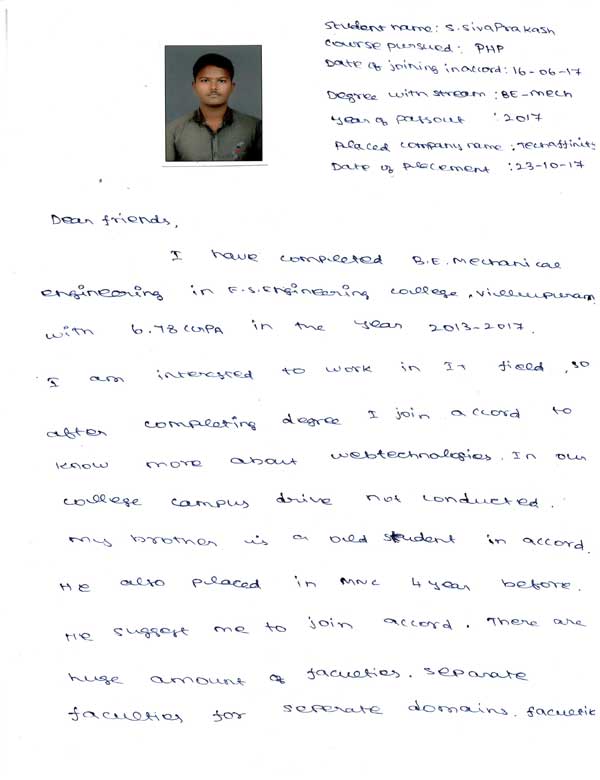 Student name: S.SivaPrakash
Course pursued: PHP
Date of joining in accord: 16-06-17
Degree with stream : BE-Mech
Year of Passout : 2017
Placed company name : TechAffinity
Date of Placement : 23-10-17
Dear friends,
I have completed B.E. Mechanical
engineering in E.S.Engineering college, villupuram
with 6.78 CGPA in the year 2013-2017.
I am interested to work in IT field, so
after completing degree I join accord to
know more about webtechnologies. In our
college campus drive not conducted.
My brother is a old student in accord.
He also placed in MNC 4 year before.
He suggest me to join accord. There are
huge amount of faculties. separate
faculties for seperate domains. facultie